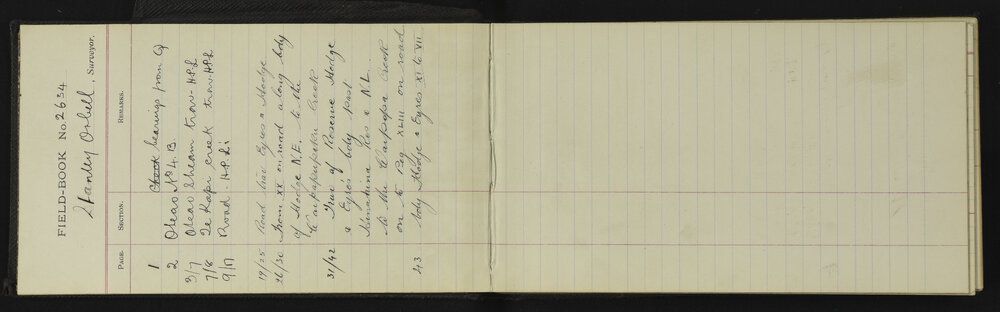 FIELD-BOOK No. 2634
Stanley Orbell, Surveyor.
PAGE. SECTION. REMARKS.
1 Check bearings from G
2 Oteao No 4 B
3/7 Oteao Stream trav - H.P.L
7/8 Te Kapi creek trav. H.P.L
9/17 Road - H.P. Li
19/25 Road line Eyres & Hodge
26/30 From XX on road along bdy
of Hodge N.E. to the
Creek
31/42 True of Reserve Hodge
& Eyres bdy past
Res & N.L.
to the Creek
on to Peg XLIII on road
43 bdy Hodge & Eyres XI to VII